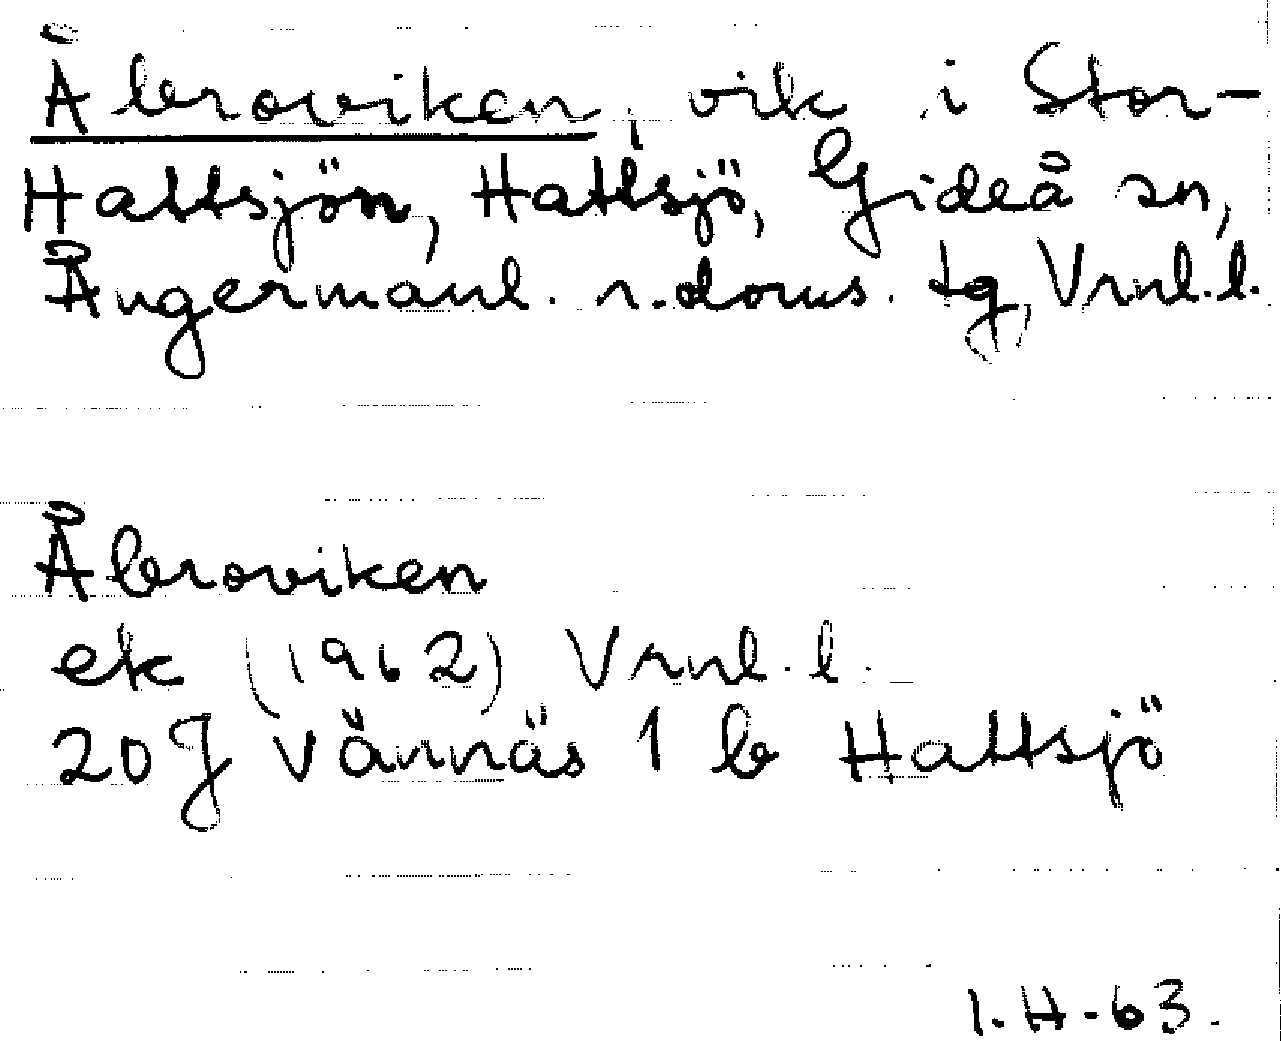 Åbroviken, vik i Stor-
Hattsjön, Hattsjö, Gideå sn,
Ångermanl. n. doms. tg, Vrnl.l.
Åbroviken
ek (1962) Vrnl.l.
20J Vännäs 1 b Hattsjö
I.H-63.